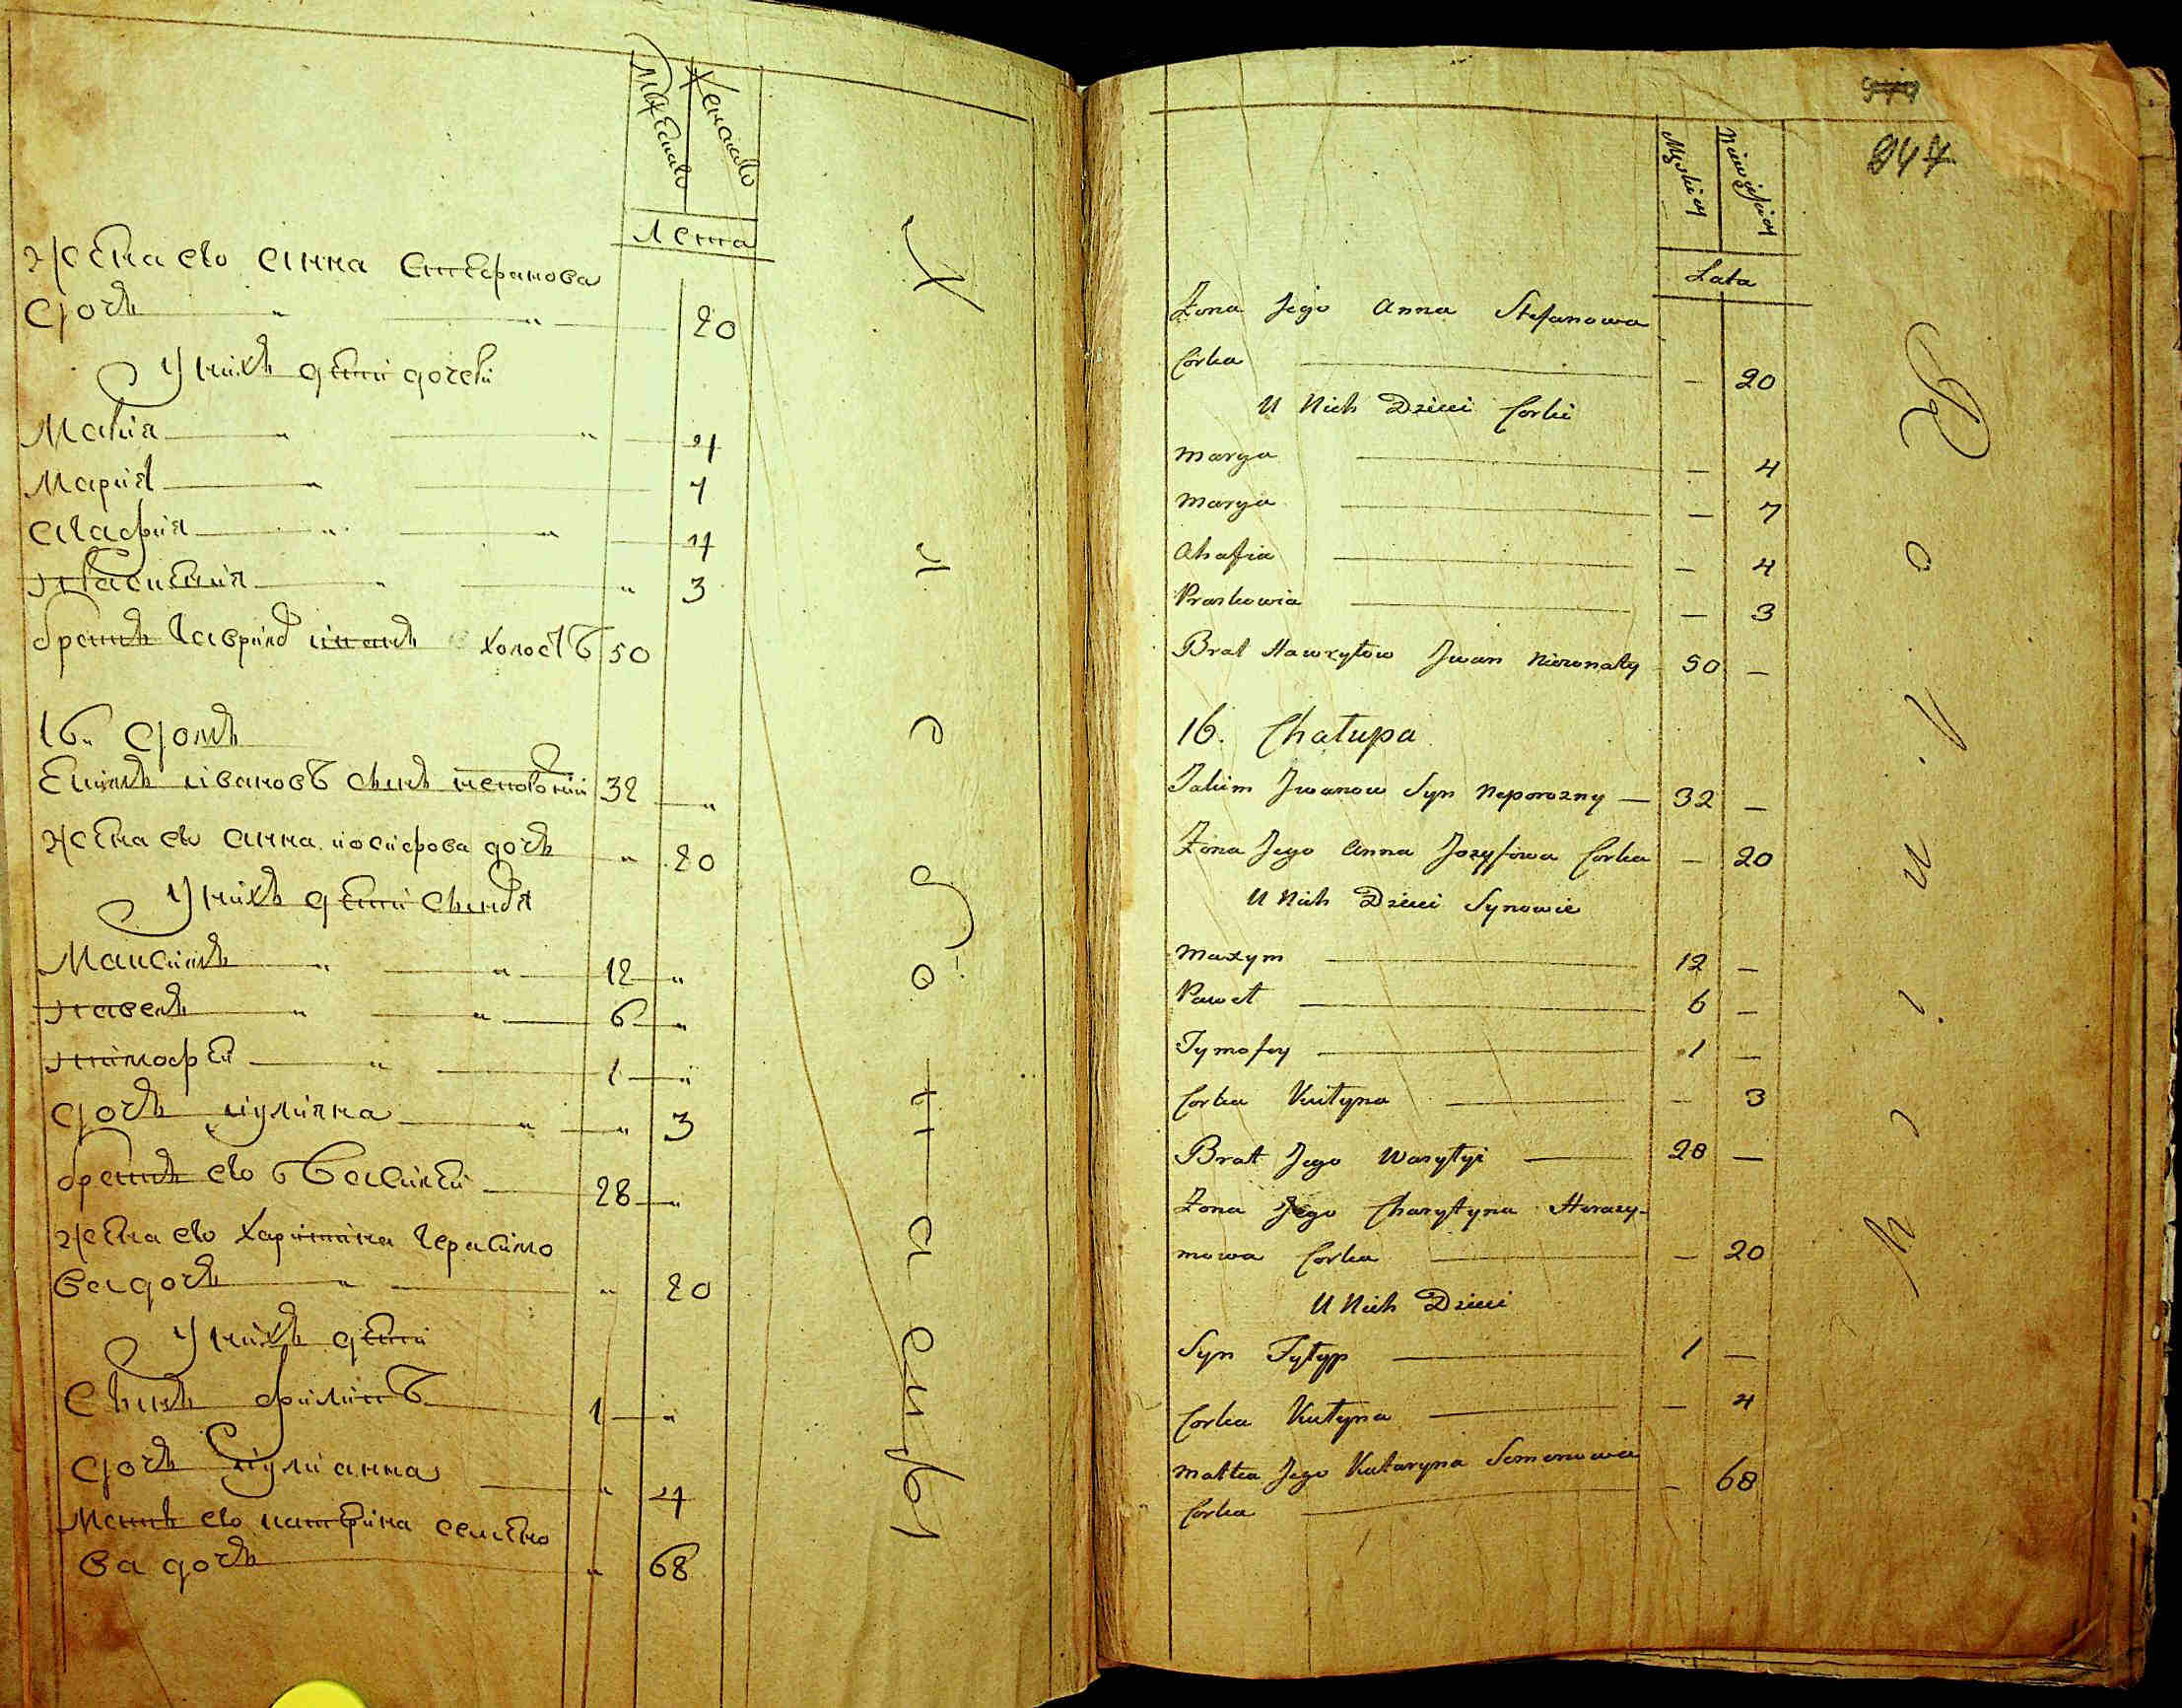 Мужеска Женска
Лета
Жена его анна Стефанова
дочъ " " 20
У нихъ дети дочеры
Мария " " 4
Мария " 7
агафия " " 4
Параскевия " " 3
братъ гаврилов иванъ холостъ 50
16" домъ
Екимъ ивановъ сынъ непорожний 32 "
Жена его анна иосифова дочъ " 20
У нихъ дети сынов я
Максимъ " " 12 "
Павелъ " " 6 "
Тимофей " 1 "
дочъ иулияна " " 3
братъ его Василей 28 "
Жена его харитина герасимо
ва дочъ " " 20
У нихъ дети
Сынъ филипъ 1 "
дочъ иулианна " 4
Мать его катерина семено
ва дочъ " 68
947
Męskiey
Lata
Żona Jego Anna Stefanowa
Corka — 20
U Nich Dzieci Corki
Marya — 4
Marya — 7
Ahafia — 4
Praskowia — 3
Brat Hawryłow Jwan Nieżonaty 50 —
16. Chałupa
Jakim Jwanow Syn Neporozny — 32 —
Żona Jego Anna Jozyfowa Corka — 20
U Nich Dzieci Synowie
Maxym 12 —
Paweł 6 —
Tymofey 1 —
Corka Kutyna — 3
Brat Jego Wasylyi 28 —
Żona Jego Charytyna Herasy-
mowa Corka — 20
U Nich Dzieci
Syn Fylyp 1 —
Corka Kutyna — 4
Matka Jego Kataryna Semenowa
Corka — 68